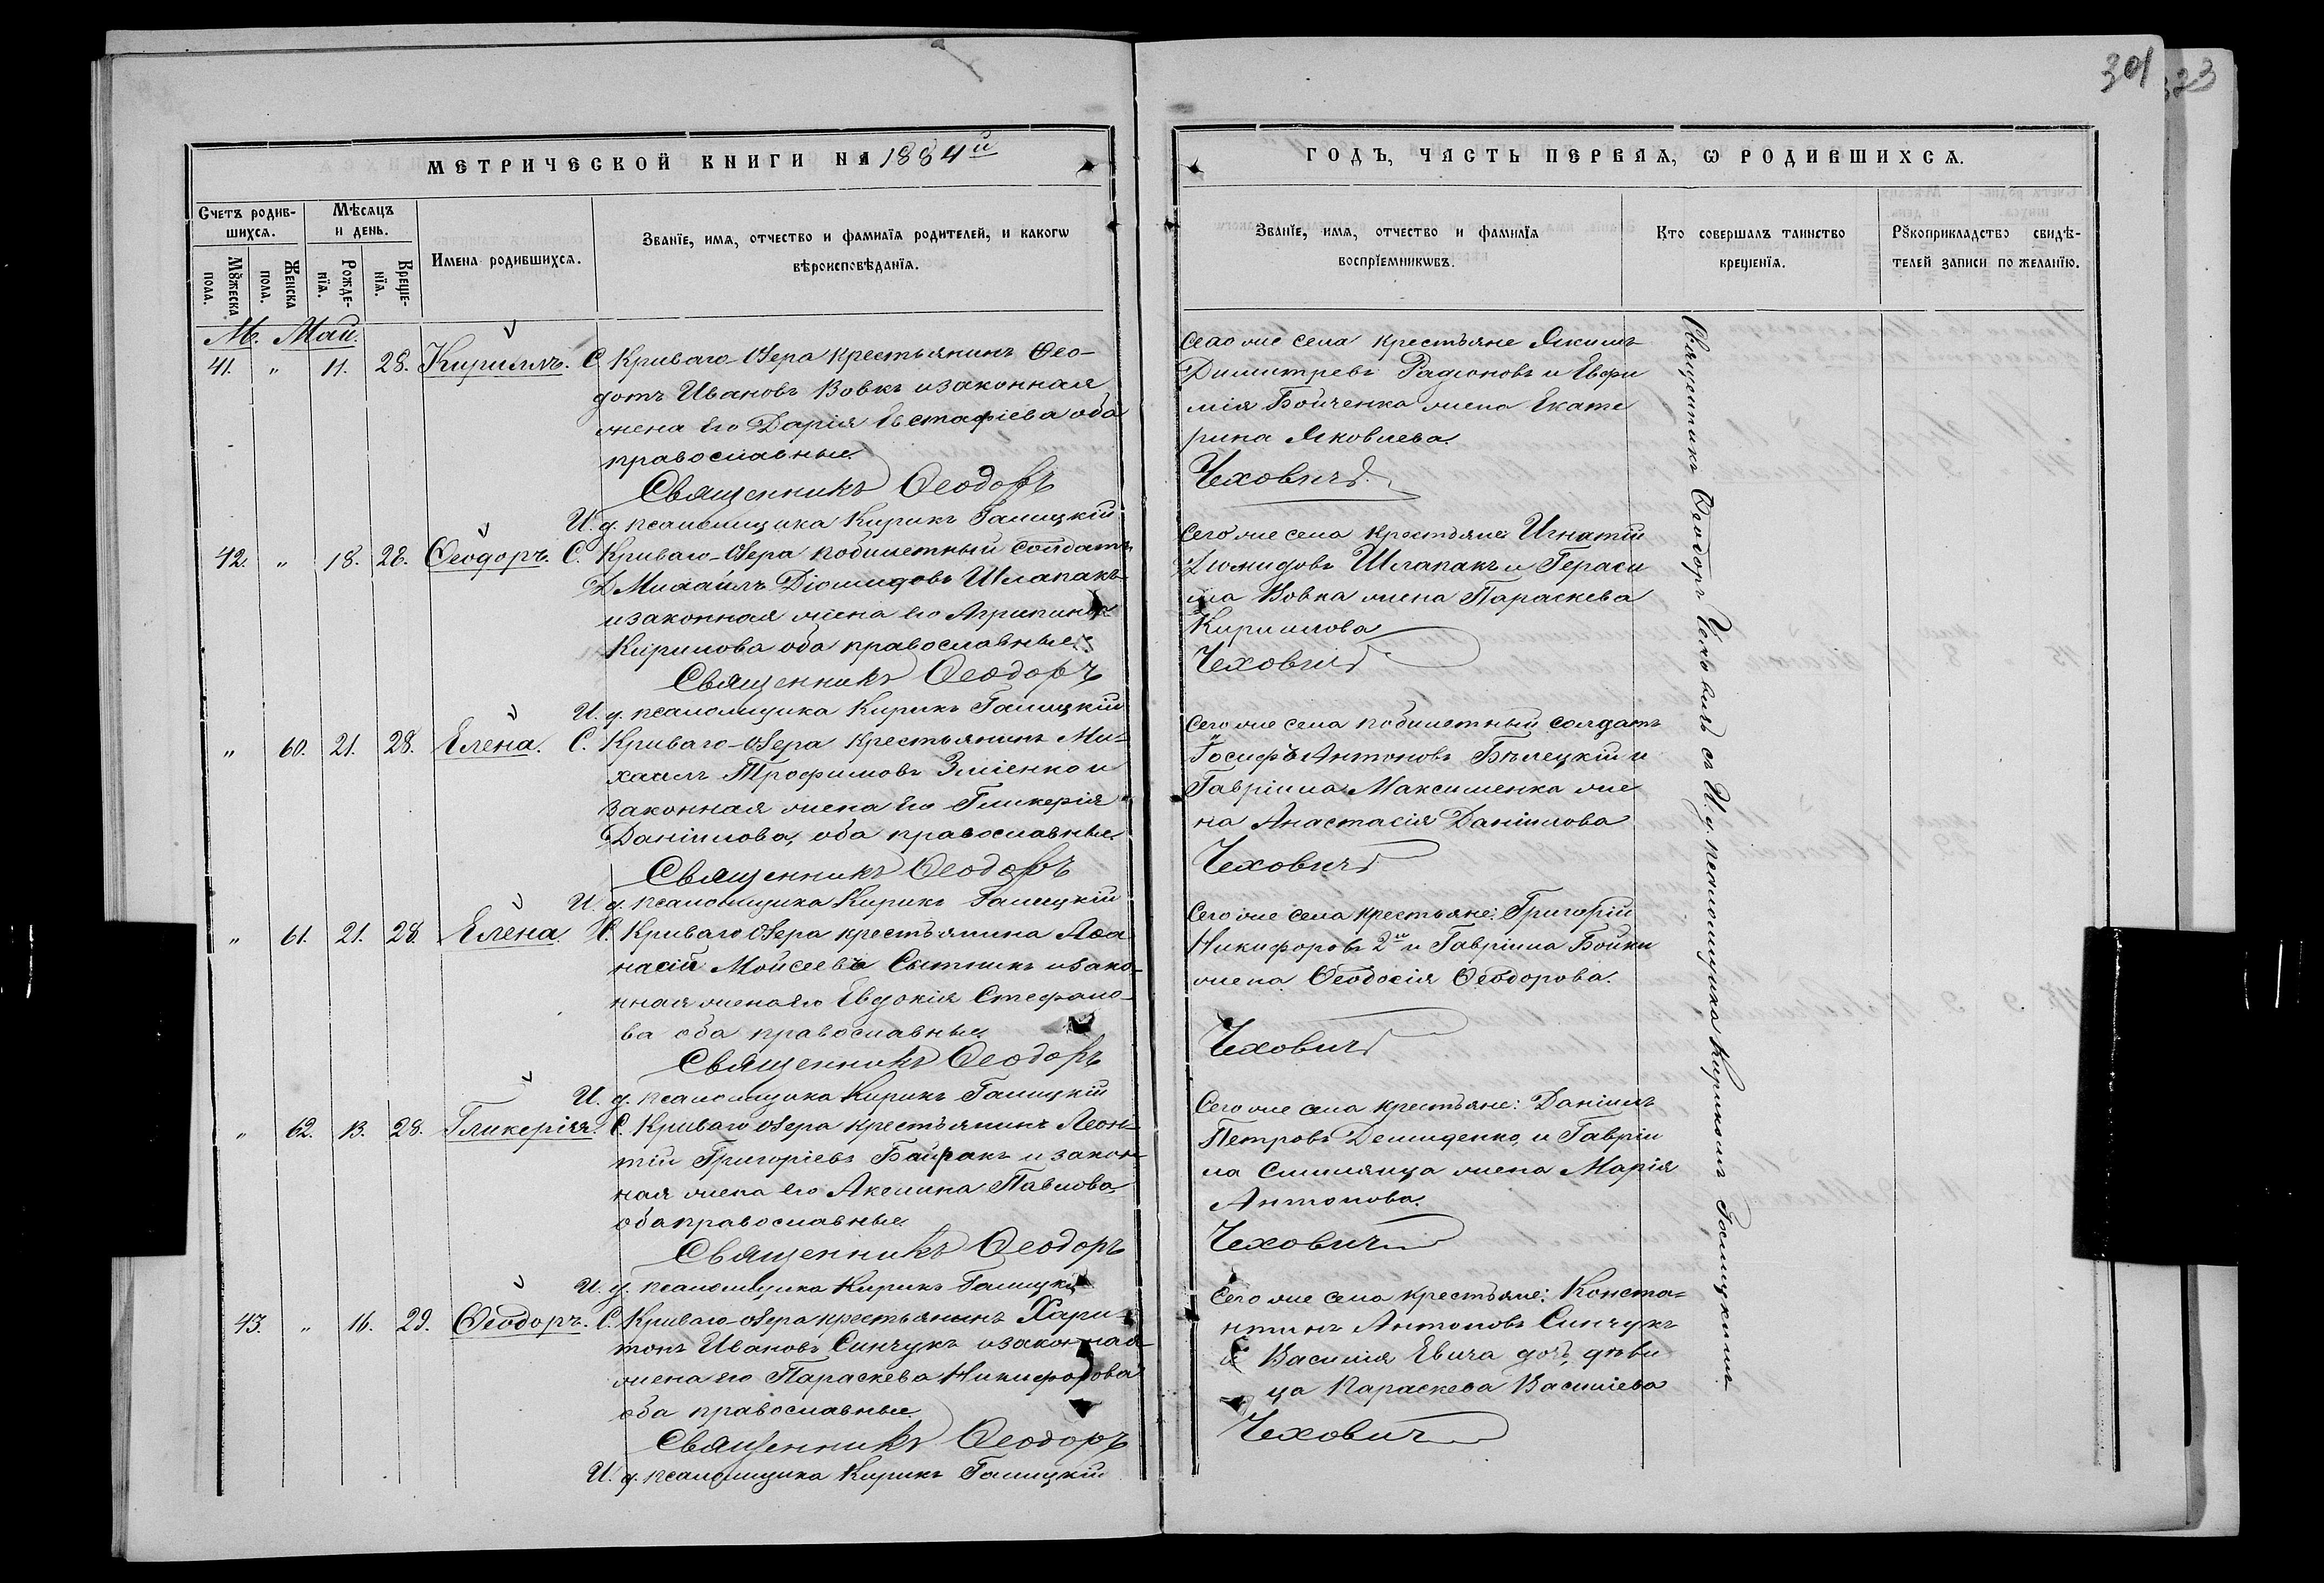 301
323
МЕТРИЧЕСКОЙ КНИГИ НА 1884й
ГОДЪ, ЧАСТЬ ПЕРВАЯ, Ѡ РОДИВШИХСѦ.
Счетъ родив-
шихсѧ.
Мѣсяцъ
и день.
Имена родившихсѧ.
Званїе, имѧ, отчество и фамилїѧ родителей, и какогѡ
вѣроисповѣданїѧ.
Мꙋжеска
пола.
Женска
пола.
Рожде-
нїѧ.
Креще-
нїѧ.
Званїе, имѧ, отчество и фамилїѧ
воспрїемникѡвъ.
Кто совершалъ таинство
крещенїѧ.
Рꙋкоприкладство свидѣ-
телей записи по желанїю.
М. Май.
41. " 11. 28. Кириллъ. С. Криваго-Озера крестьянинъ Ѳео-
дотъ Ивановъ Вовкъ и законная
жена его Дарія Евстафіева оба
православные.
Священникъ Ѳеодоръ
И. д. псаломщика Кирикъ Галицкій
Сего же села крестьяне Якимъ
Димитревъ Радіоновъ и Евфи
мія Бойченка жена Екате
рина Яковлева.
Чеховичъ.
42. " 18. 28. Ѳеодоръ. С. Криваго-Озера побилетный солдатъ
Михаилъ Діомидовъ Шлапакъ
и законная жена его Агрипина
Кирилова оба православные.
Священникъ Ѳеодоръ
И. д. псаломщика Кирикъ Галицкій
Сего же села крестьяне Игнатій
Діомидовъ Шлапакъ и Гераси
ма Вовка жена Параскева
Кириллова
Чеховичъ
" 60. 21. 28. Елена. С. Криваго-Озера крестьянинъ Ми-
хаилъ Трофимовъ Зміенко и
законная жена его Гликерія
Даніилова, оба православные.
Священникъ Ѳеодоръ
И. д. псаломщика Кирикъ Галицкій
Сего же села побилетный солдатъ
Іосифъ Антоновъ Бѣлецкій и
Гавріила Максименка же
на Анастасія Даніилова
Чеховичъ
" 61. 21. 28. Елена. С. Криваго Озера крестьянина Аѳа
насій Мойсеевъ Сытникъ и зако-
нная жена его Евдокія Стефано-
ва оба православные.
Священникъ Ѳеодоръ
И. д. псаломщика Кирикъ Галицкій
Сего же села крестьяне: Григорій
Никифоровъ 2й и Гавріила Бойки
жена Ѳеодосія Ѳеодорова.
Чеховичъ
" 62. 13. 28. Гликерія. С. Криваго Озера крестьянинъ Леон-
тій Григоріевъ Байракъ и закон-
ная жена его Акелина Павлова
оба православные.
Священникъ Ѳеодоръ
И. д. псаломщика Кирикъ Галицкій
Сего же села крестьяне: Даніилъ
Петровъ Демиденко, и Гавріи
ла жена Марія
Антонова.
Чеховичъ
43. " 16. 29. Ѳеодоръ. С. Криваго-Озера крестьянинъ Хари-
тонъ Ивановъ Синчукъ и законная
жена его Параскева Никифорова
оба православные.
Священникъ Ѳеодоръ
И. д. псаломщика Кирикъ Галицкій
Сего же села крестьяне: Конста-
нтинъ Антоновъ Синчукъ
и Василія Евича дочь дѣви
ца Параскева Василіева
Чеховичъ
Священникъ Ѳеодоръ Чеховичъ съ И. д. псаломщика Кирикомъ Галицкимъ